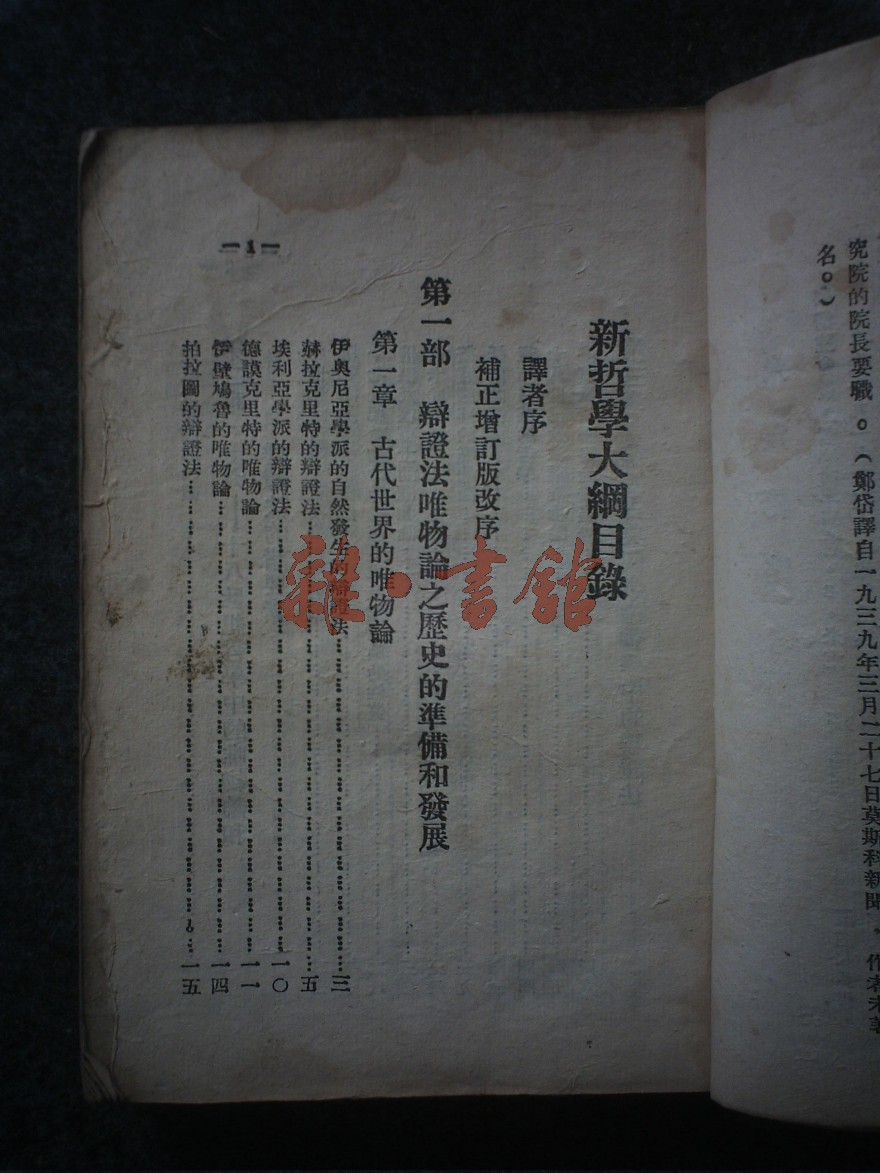 究院的院長要職。（鄭岱譯自一九三九年三月二十七日莫斯科新聞，作者未署
名。）
新哲學大綱目錄
譯者序
補正增訂版改序
第一部 辯證法唯物論之歷史的準備和發展
第一章 古代世界的唯物論
伊奧尼亞學派的自然發生的辯證法………三
赫拉克里特的辯證法………五
埃利亞學派的辯證法………一〇
德謨克里特的唯物論………一一
伊壁鳩魯的唯物論………一四
拍拉圖的辯證法………一五
—1—
雜·書館